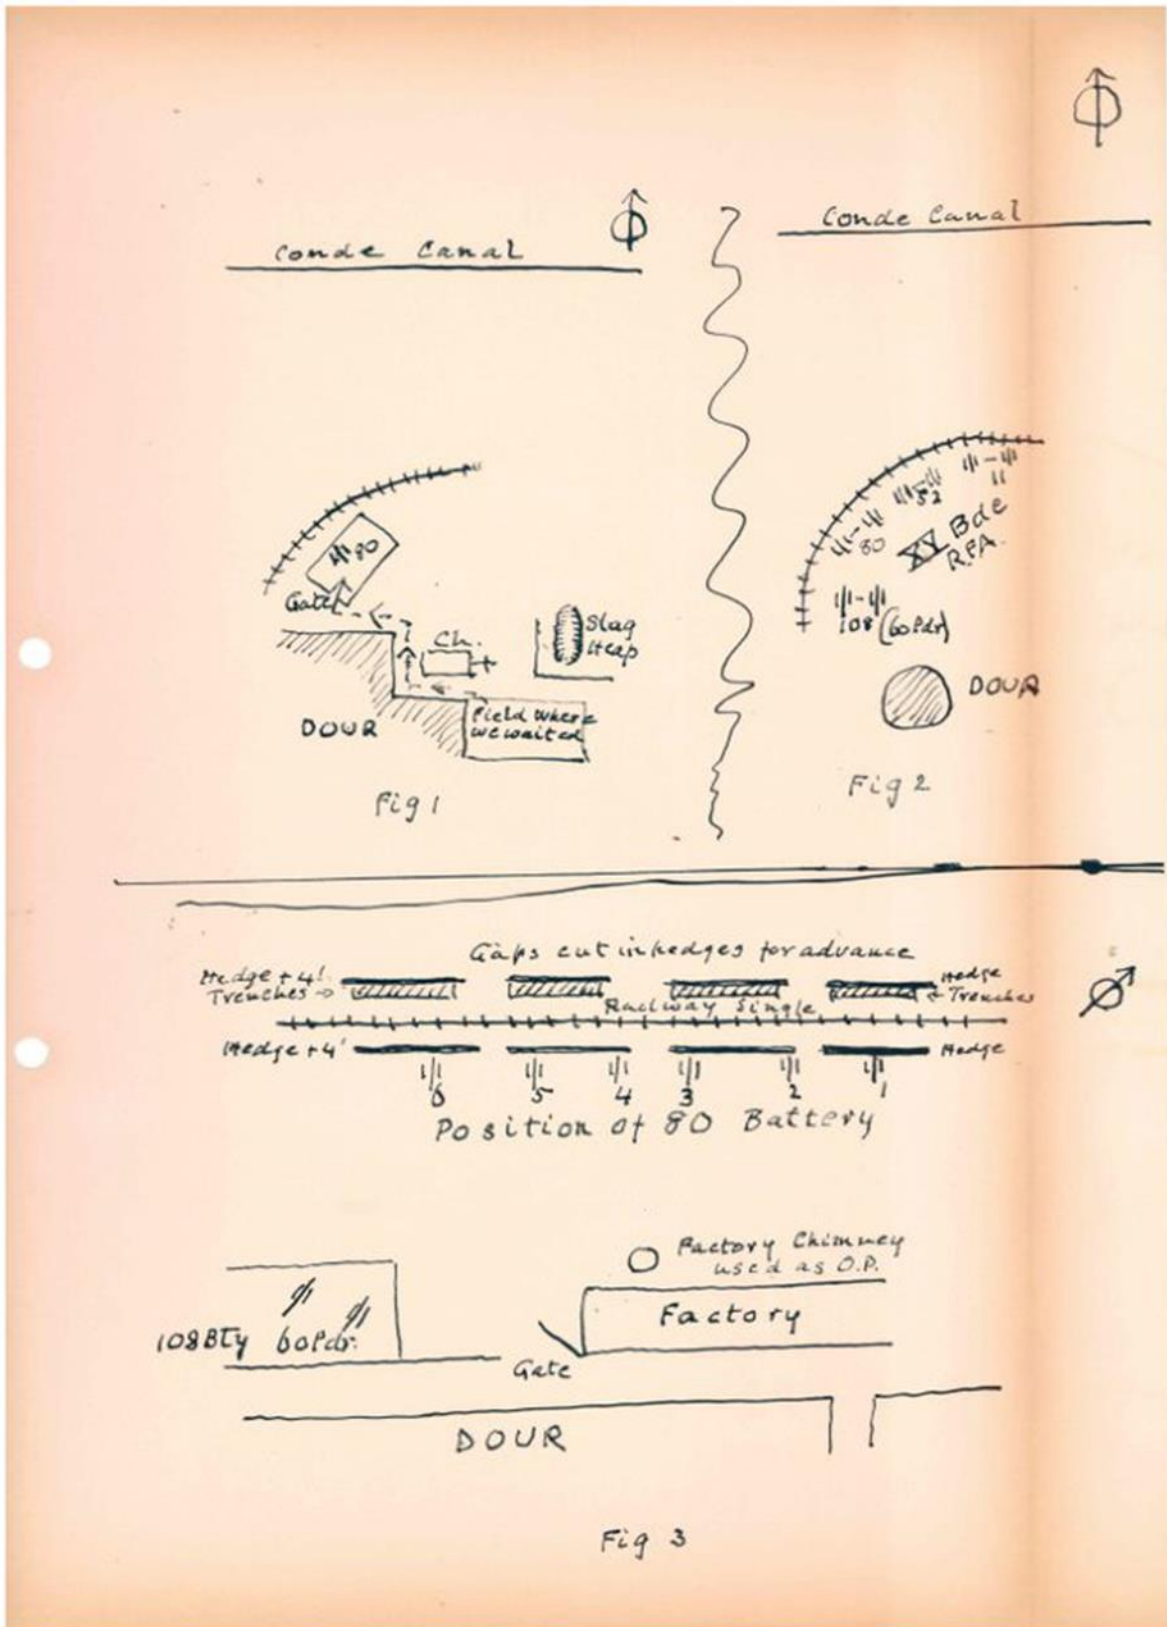 Conde Canal
80
Gate
Ch.
Slag
Heap
DOUR
Field where
we waited
Fig 1
Conde Canal
11
52
80
XV Bde
R.F.A.
108 (60 Pdr)
DOUR
Fig 2
Gaps cut in hedges for advance
Hedge + 4'
Trenches →
Hedge
← Trenches
Railway Single
Hedge + 4'
Hedge
6 5 4 3 2 1
Position of 80 Battery
Factory Chimney
used as O.P.
Factory
108 Bty 60 Pdr.
Gate
DOUR
Fig 3